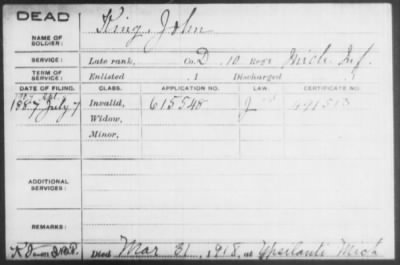 DEAD
NAME OF SOLDIER: King, John
SERVICE: Late rank, Co. D, 10 Reg't Mich. Inf.
TERM OF SERVICE: Enlisted , 1 Discharged , 1
DATE OF FILING. CLASS. APPLICATION NO. LAW. CERTIFICATE NO.
1887 July 7 Invalid, 615548 J
Widow,
Minor,
ADDITIONAL SERVICES:
REMARKS:
Died Mar 31, 1918, at Ypsilanti Mich